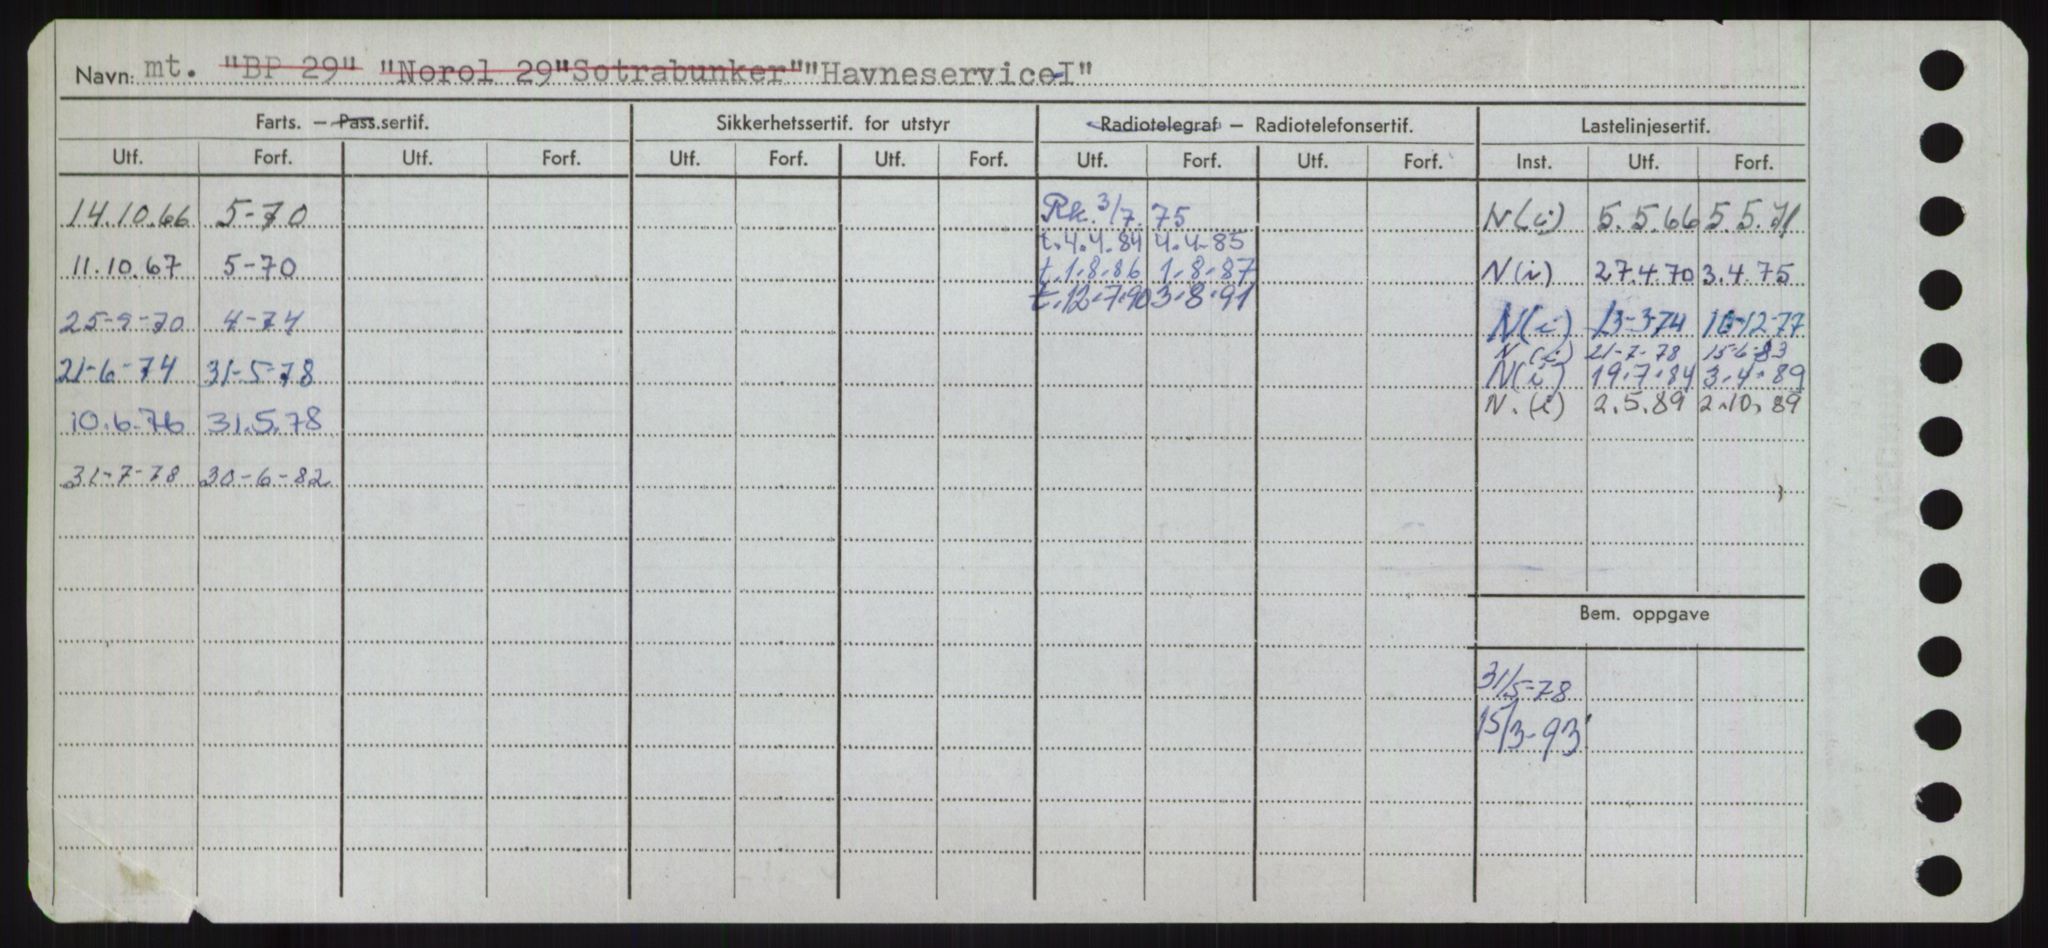 Navn: mt. "BP 29" "Norol 29" "Sotrabunker" "Havneservice I"
Farts. — Pass.sertif. Sikkerhetssertif. for utstyr Radiotelegraf — Radiotelefonsertif. Lastelinjesertif.
Utf. Forf. Utf. Forf. Utf. Forf. Utf. Forf. Utf. Forf. Utf. Forf. Inst. Utf. Forf.
14.10.66 5-70 Rk. 3/7. 75 N(i) 5.5.66 5.5.71
t.4.4.84 4.4-85
11.10.67 5-70 t.1.8.86 1.8.87 N(i) 27.4.70 3.4.75
t.12.7.90 3.8.91
25-9-70 4-74 N(i) 13-3-74 10-12-77
N(i) 21-7-78 15-6-83
21-6-74 31-5-78 N(i) 19.7.84 3.4.89
N.(i) 2.5.89 2.10.89
10.6.76 31.5.78
31-7-78 30-6-82
Bem. oppgave
31/5-78
15/3-93